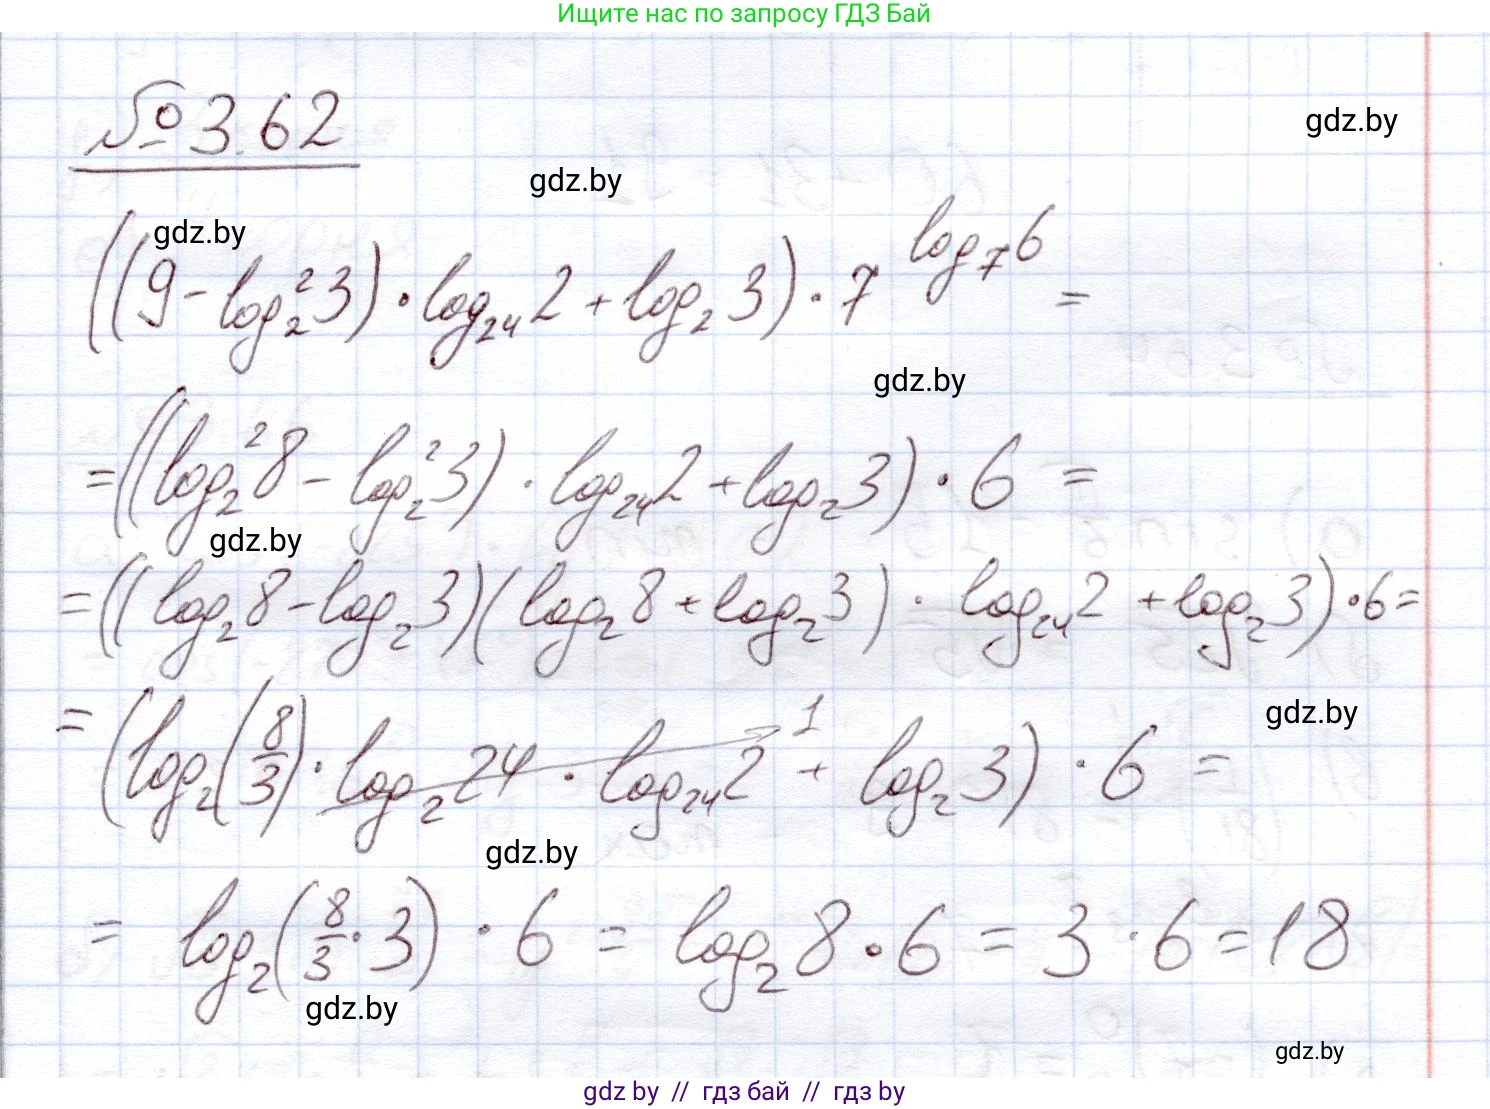 Ищите нас по запросу ГДЗ Бай
№ 3.62
gdz.by
gdz.by
gdz.by
((9 - log₂²3) · log₂₄2 + log₂3) · 7^(log₇6) =
gdz.by
= ((log₂²8 - log₂²3) · log₂₄2 + log₂3) · 6 =
gdz.by
= ((log₂8 - log₂3)(log₂8 + log₂3) · log₂₄2 + log₂3) · 6 =
gdz.by
= (log₂(8/3) · log₂24 · log₂₄2 1 + log₂3) · 6 =
gdz.by
= log₂(8/3 · 3) · 6 = log₂8 · 6 = 3 · 6 = 18
gdz.by
gdz.by
gdz by // гдз бай // гдз by